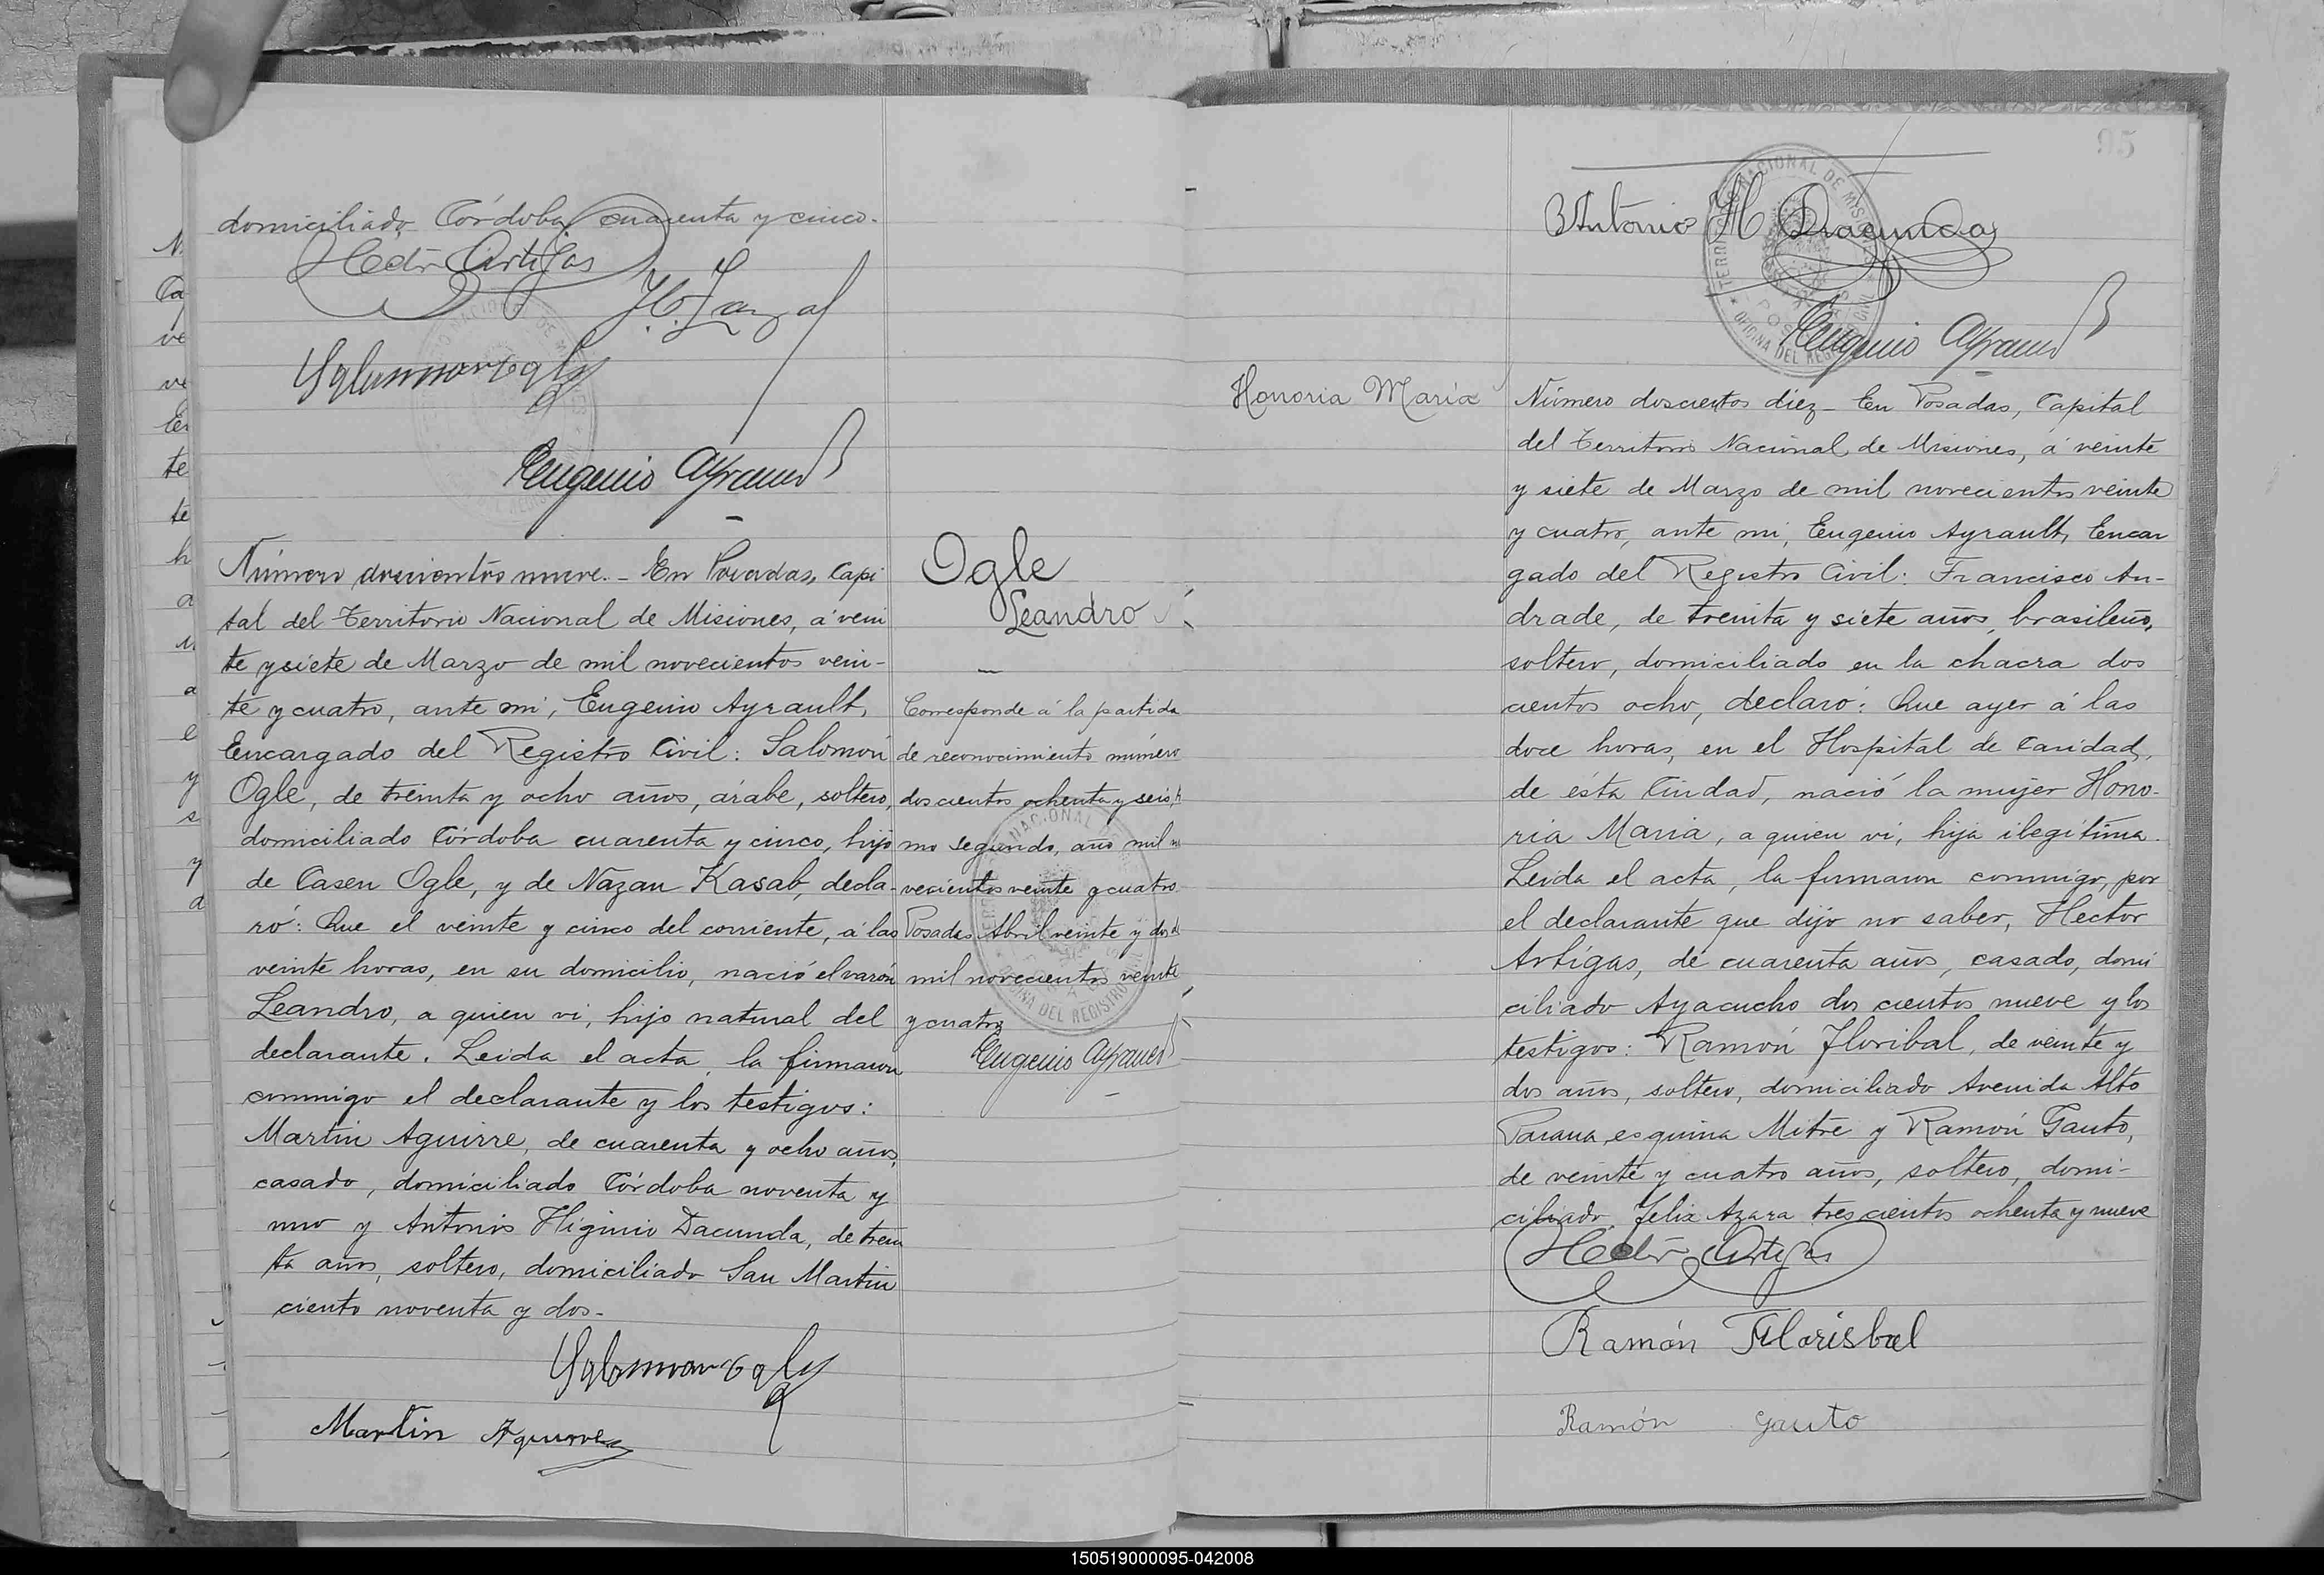 domiciliado Córdoba cuarenta y cinco.
Hector Artigas
Eugenio Ayrault
Número doscientos nueve. - En Posadas, Capi
tal del Territorio Nacional de Misiones, á vein
te y siete de Marzo de mil novecientos vein-
te y cuatro, ante mi, Eugenio Ayrault,
Encargado del Registro Civil: Salomón
Ogle, de treinta y ocho años, árabe, soltero,
domiciliado Córdoba cuarenta y cinco, hijo
de Casen Ogle, y de Nazan Kasab, decla-
ró: Que el veinte y cinco del corriente, á las
veinte horas, en su domicilio, nació el varón
Leandro, a quien vi, hijo natural del
declarante. Leida el acta, la firmaron
conmigo el declarante y los testigos:
Martin Aguirre, de cuarenta y ocho años,
casado, domiciliado Córdoba noventa y
uno y Antonio Higinio Dacunda, de trein
ta años, soltero, domiciliado San Martin
ciento noventa y dos.
Martin Aguirre
Ogle
Leandro
Corresponde á la partida
de reconocimiento número
doscientos ochenta y seis, to
mo segundo, año mil no
vecientos veinte y cuatro
Posadas Abril veinte y dos de
mil novecientos veinte
y cuatro
Eugenio Ayrault
95
Antonio H Dacunda
TERRITORIO NACIONAL DE MISIONES
OFICINA DEL REGISTRO CIVIL
POSADAS
Eugenio Ayrault
Honoria María
Número doscientos diez - En Posadas, Capital
del Territorio Nacional de Misiones, á veinte
y siete de Marzo de mil novecientos veinte
y cuatro, ante mi, Eugenio Ayrault, Encar
gado del Registro Civil: Francisco An-
drade, de treinta y siete años, brasileño,
soltero, domiciliado en la chacra dos
cientos ocho, declaró: Que ayer á las
doce horas, en el Hospital de Caridad,
de ésta Ciudad, nació la mujer Hono-
ria Maria, a quien vi, hija ilegítima.
Leida el acta, la firmaron conmigo, por
el declarante que dijo no saber, Hector
Artígas, de cuarenta años, casado, domi
ciliado Ayacucho dos cientos nueve y los
testigos: Ramón Floribal, de veinte y
dos años, soltero, domiciliado Avenida Alto
Parana esquina Mitre y Ramón Gauto,
de veinte y cuatro años, soltero, domi-
ciliado Felix Azara tres cientos ochenta y nueve
Hector Artigas
Ramón Florisbal
Ramón Gauto
150519000095-042008